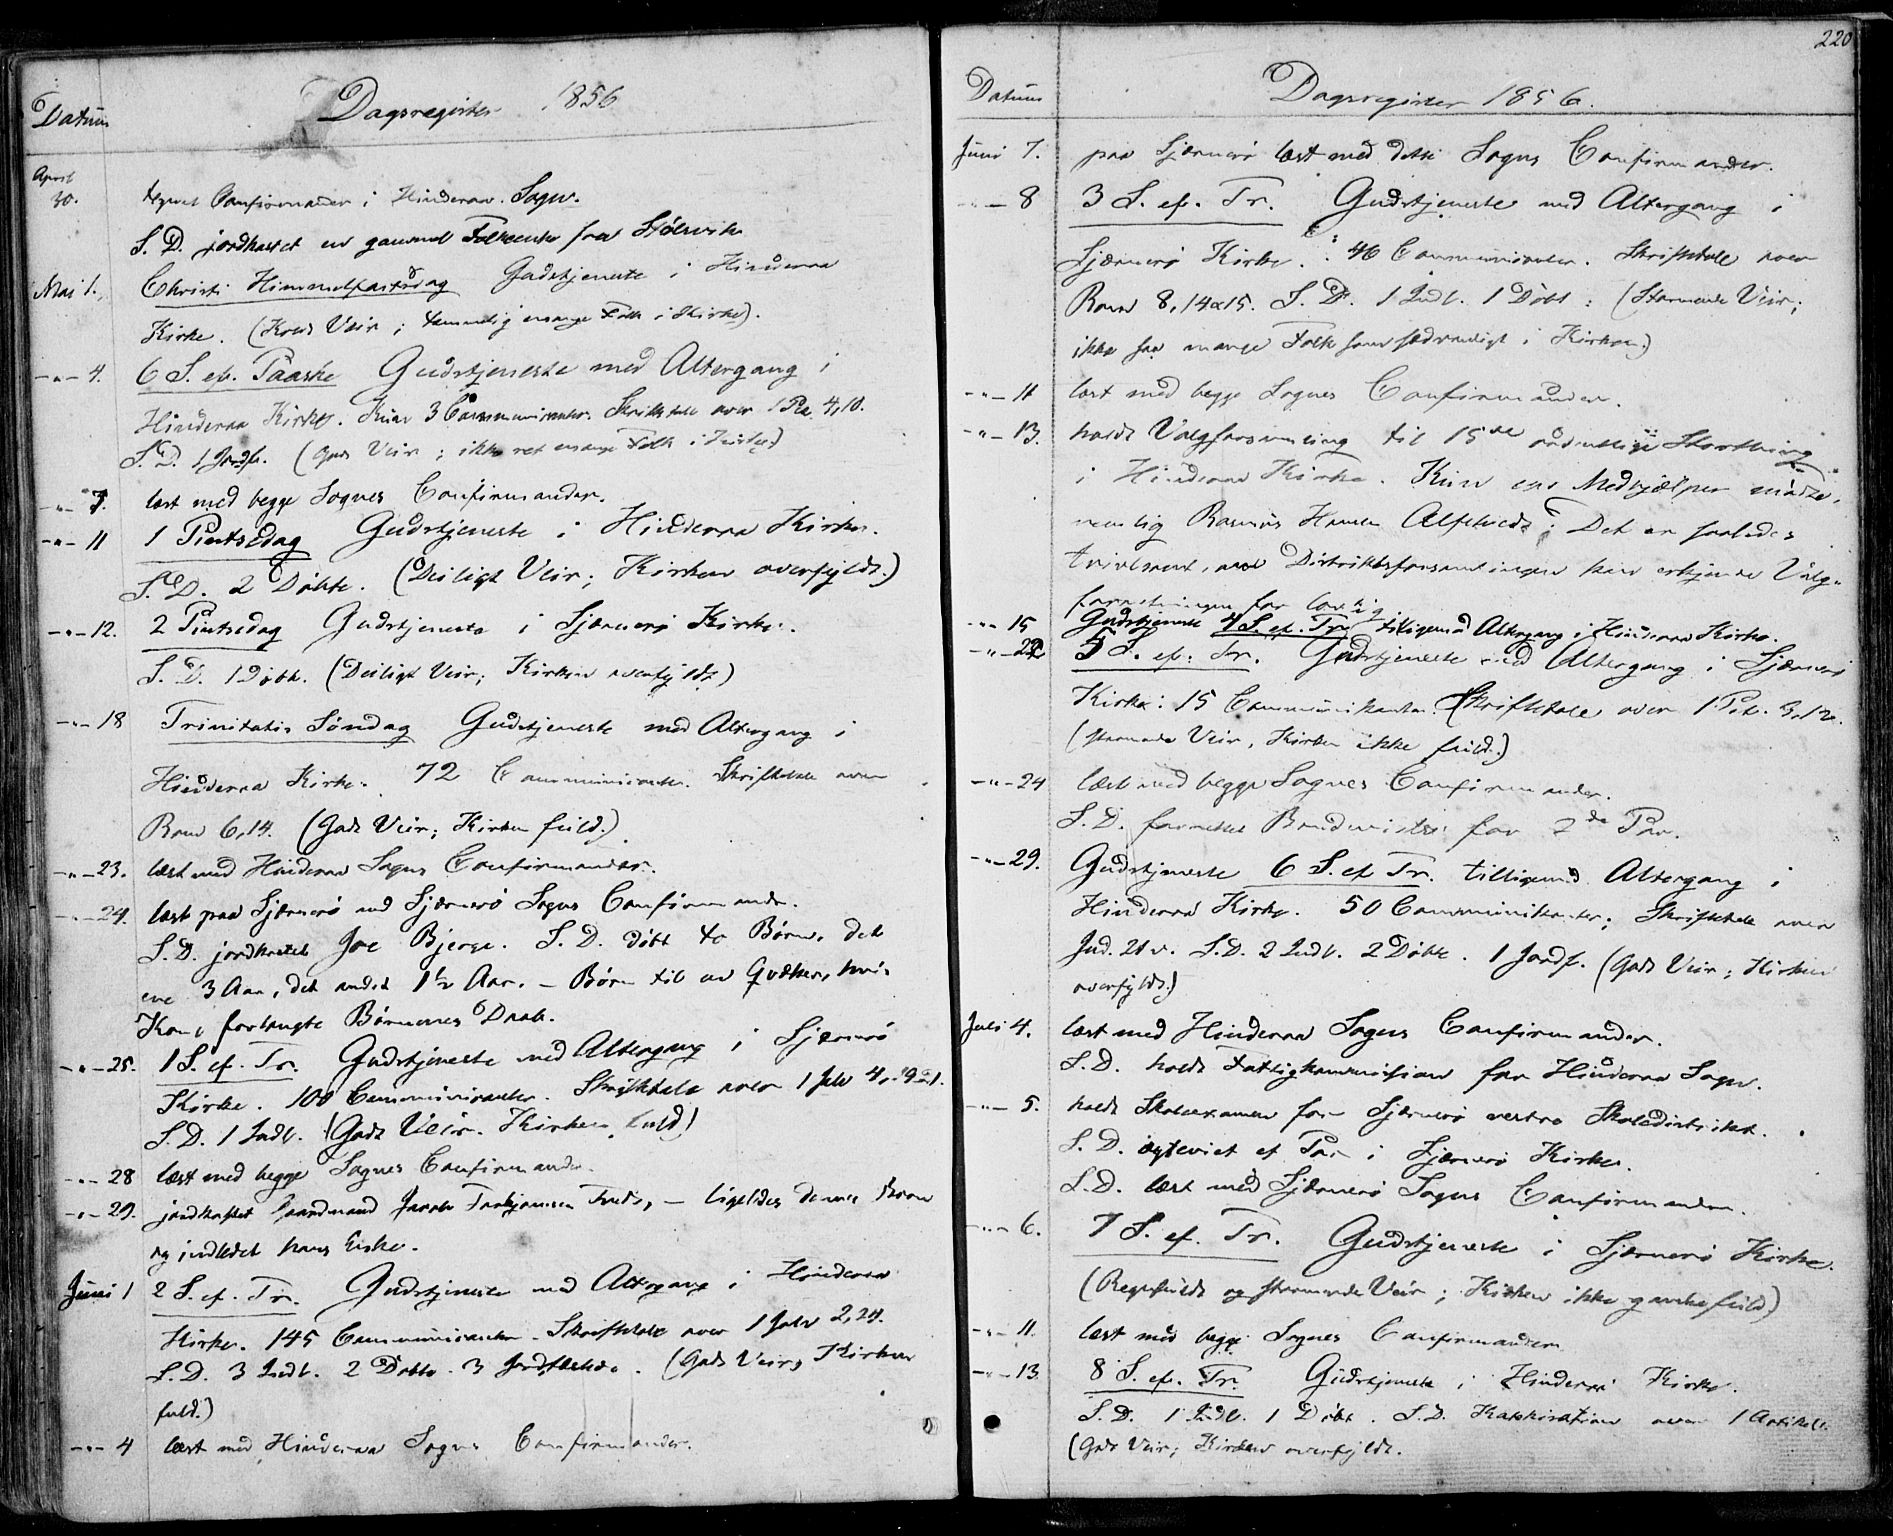 Datum Dagsregister 1856
April
30. Confirmander i Hinderaa Sogn.
S. D. jordkastet en gammel fra Stølsvik
Mai 1. Christi Himmelfartsdag Gudstjeneste i Hinderaa
Kirke. (Koldt Veir; temmelig mange Folk i Kirke).
-"- 4. 6 S. ef. Paaske Gudstjeneste med Altergang i
Hinderaa Kirke. Kun 3 Communicanter. Skriftetale over 1 Pet. 4,10.
S. D. 1 Jordf. (Godt Veir; ikke ret mange Folk i Kirke)
-"- 7. læst med begge Sognes Confirmander.
-"- 11 1 Pintsedag Gudstjeneste i Hinderaa Kirke.
S. D. 2 Døbte. (Deiligt Veir; Kirken overfyldt.)
-"- 12. 2 Pintsedag Gudstjeneste i Sjærnerø Kirke.
S. D. 1 Døbt. (Deiligt Veir; Kirken overfyldt)
-"- 18 Trinitatis Søndag Gudstjeneste med Altergang i
Hinderaa Kirke. 72 Communicanter. Skriftetale over
Rom 6,14. (Godt Veir; Kirken fuld.)
-"- 23. læst med Hinderaa Sogns Confirmander.
-"- 24. læst paa Sjærnerø med Sjærnerø Sogns Confirmander.
S. D. jordkastet Joe Bjerge. S. D. døbt to Børn, det
ene 3 Aar, det andet 1½ Aar. – Børn til en Qvæker, hvis
Kone forlangte Børnenes Daab.
-"- 25. 1 S. ef. Tr. Gudstjeneste med Altergang i Sjærnerø
Kirke. 100 Communicanter. Skriftetale over 1 Joh 4, 19-21.
S. D. 1 Indl. (Godt Veir. Kirken fuld)
-"- 28 læst med begge Sognes Confirmander.
-"- 29. jordkastet Gaardmand Jacob Torbjørnsen Tveit, – ligeledes dennes Barn
og indledet hans Enke.
Juni 1 2 S. ef. Tr. Gudstjeneste med Altergang i Hinderaa
Kirke. 145 Communicanter. Skriftetale over 1 Joh 2,24.
S. D. 3 Indl. 2 Døbte. 3 Jordfæstede. (Godt Veir, Kirken
fuld.)
-"- 4 læst med Hinderaa Sogns Confirmander.
220
Datum Dagsregister 1856.
Juni 7. paa Sjærnerø læst med dette Sogns Confirmander.
-"- 8 3 S. ef. Tr. Gudstjeneste med Altergang i
Sjærnerø Kirke. 46 Communicanter. Skriftetale over
Rom 8, 14 & 15. S. D. 1 Indl. 1 Døbt. (Stormende Veir;
ikke saa mange Folk som sædvanligt i Kirken.)
-"- 11 læst med begge Sognes Confirmander.
-"- 13. holdt Valgforsamling til 15de ordentlige Storthing
i Hinderaa Kirke. Kun en Medhjælper mødte,
nemlig Rasmus Hansen. Det er saaledes
tvivlsomt, om Distriktsforsamlingen kan erkjende Valg-
forretningen for lovlig
-"- 15 Gudstjeneste 4 S. ef. Tr. tilligemed Altergang i Hinderaa Kirke.
-"- 22 5 S. ef. Tr. Gudstjeneste med Altergang i Sjærnerø
Kirke: 15 Communikanter. Skriftetale over 1 Pet. 3,12.
(stormende Veir, Kirken ikke fuld.)
-"- 24 læst med begge Sognes Confirmander.
S. D. forrettet Brudevielse for 2de Par.
-"- 29. Gudstjeneste 6 S. ef Tr. tilligemed Altergang i
Hinderaa Kirke. 50 Communikanter; Skriftetale over
Jud. 21 v. S. D. 2 Indl. 2 Døbte. 1 Jordf. (Godt Veir; Kirken
overfyldt.)
Juli 4. læst med Hinderaa Sogns Confirmander.
S. D. holdt Fattigkommission for Hinderaa Sogn.
-"- 5. holdt Skoleexamen for Sjærnerø vestre Skoledistrikt.
S. D. ægteviet et Par i Sjærnerø Kirke.
S. D. læst med Sjærnerø Sogns Confirmander.
-"- 6. 7 S. ef. Tr. Gudstjeneste i Sjærnerø Kirke.
(Regnfuldt og stormende Veir; Kirken ikke ganske fuld)
-"- 11. læst med begge Sognes Confirmander
-"- 13 8 S. ef. Tr. Gudstjeneste i Hinderaa Kirke.
S. D. 1 Indl. 1 Døbt. S. D. Katekisation over 1 Artikel.
(Godt Veir; Kirken overfyldt.